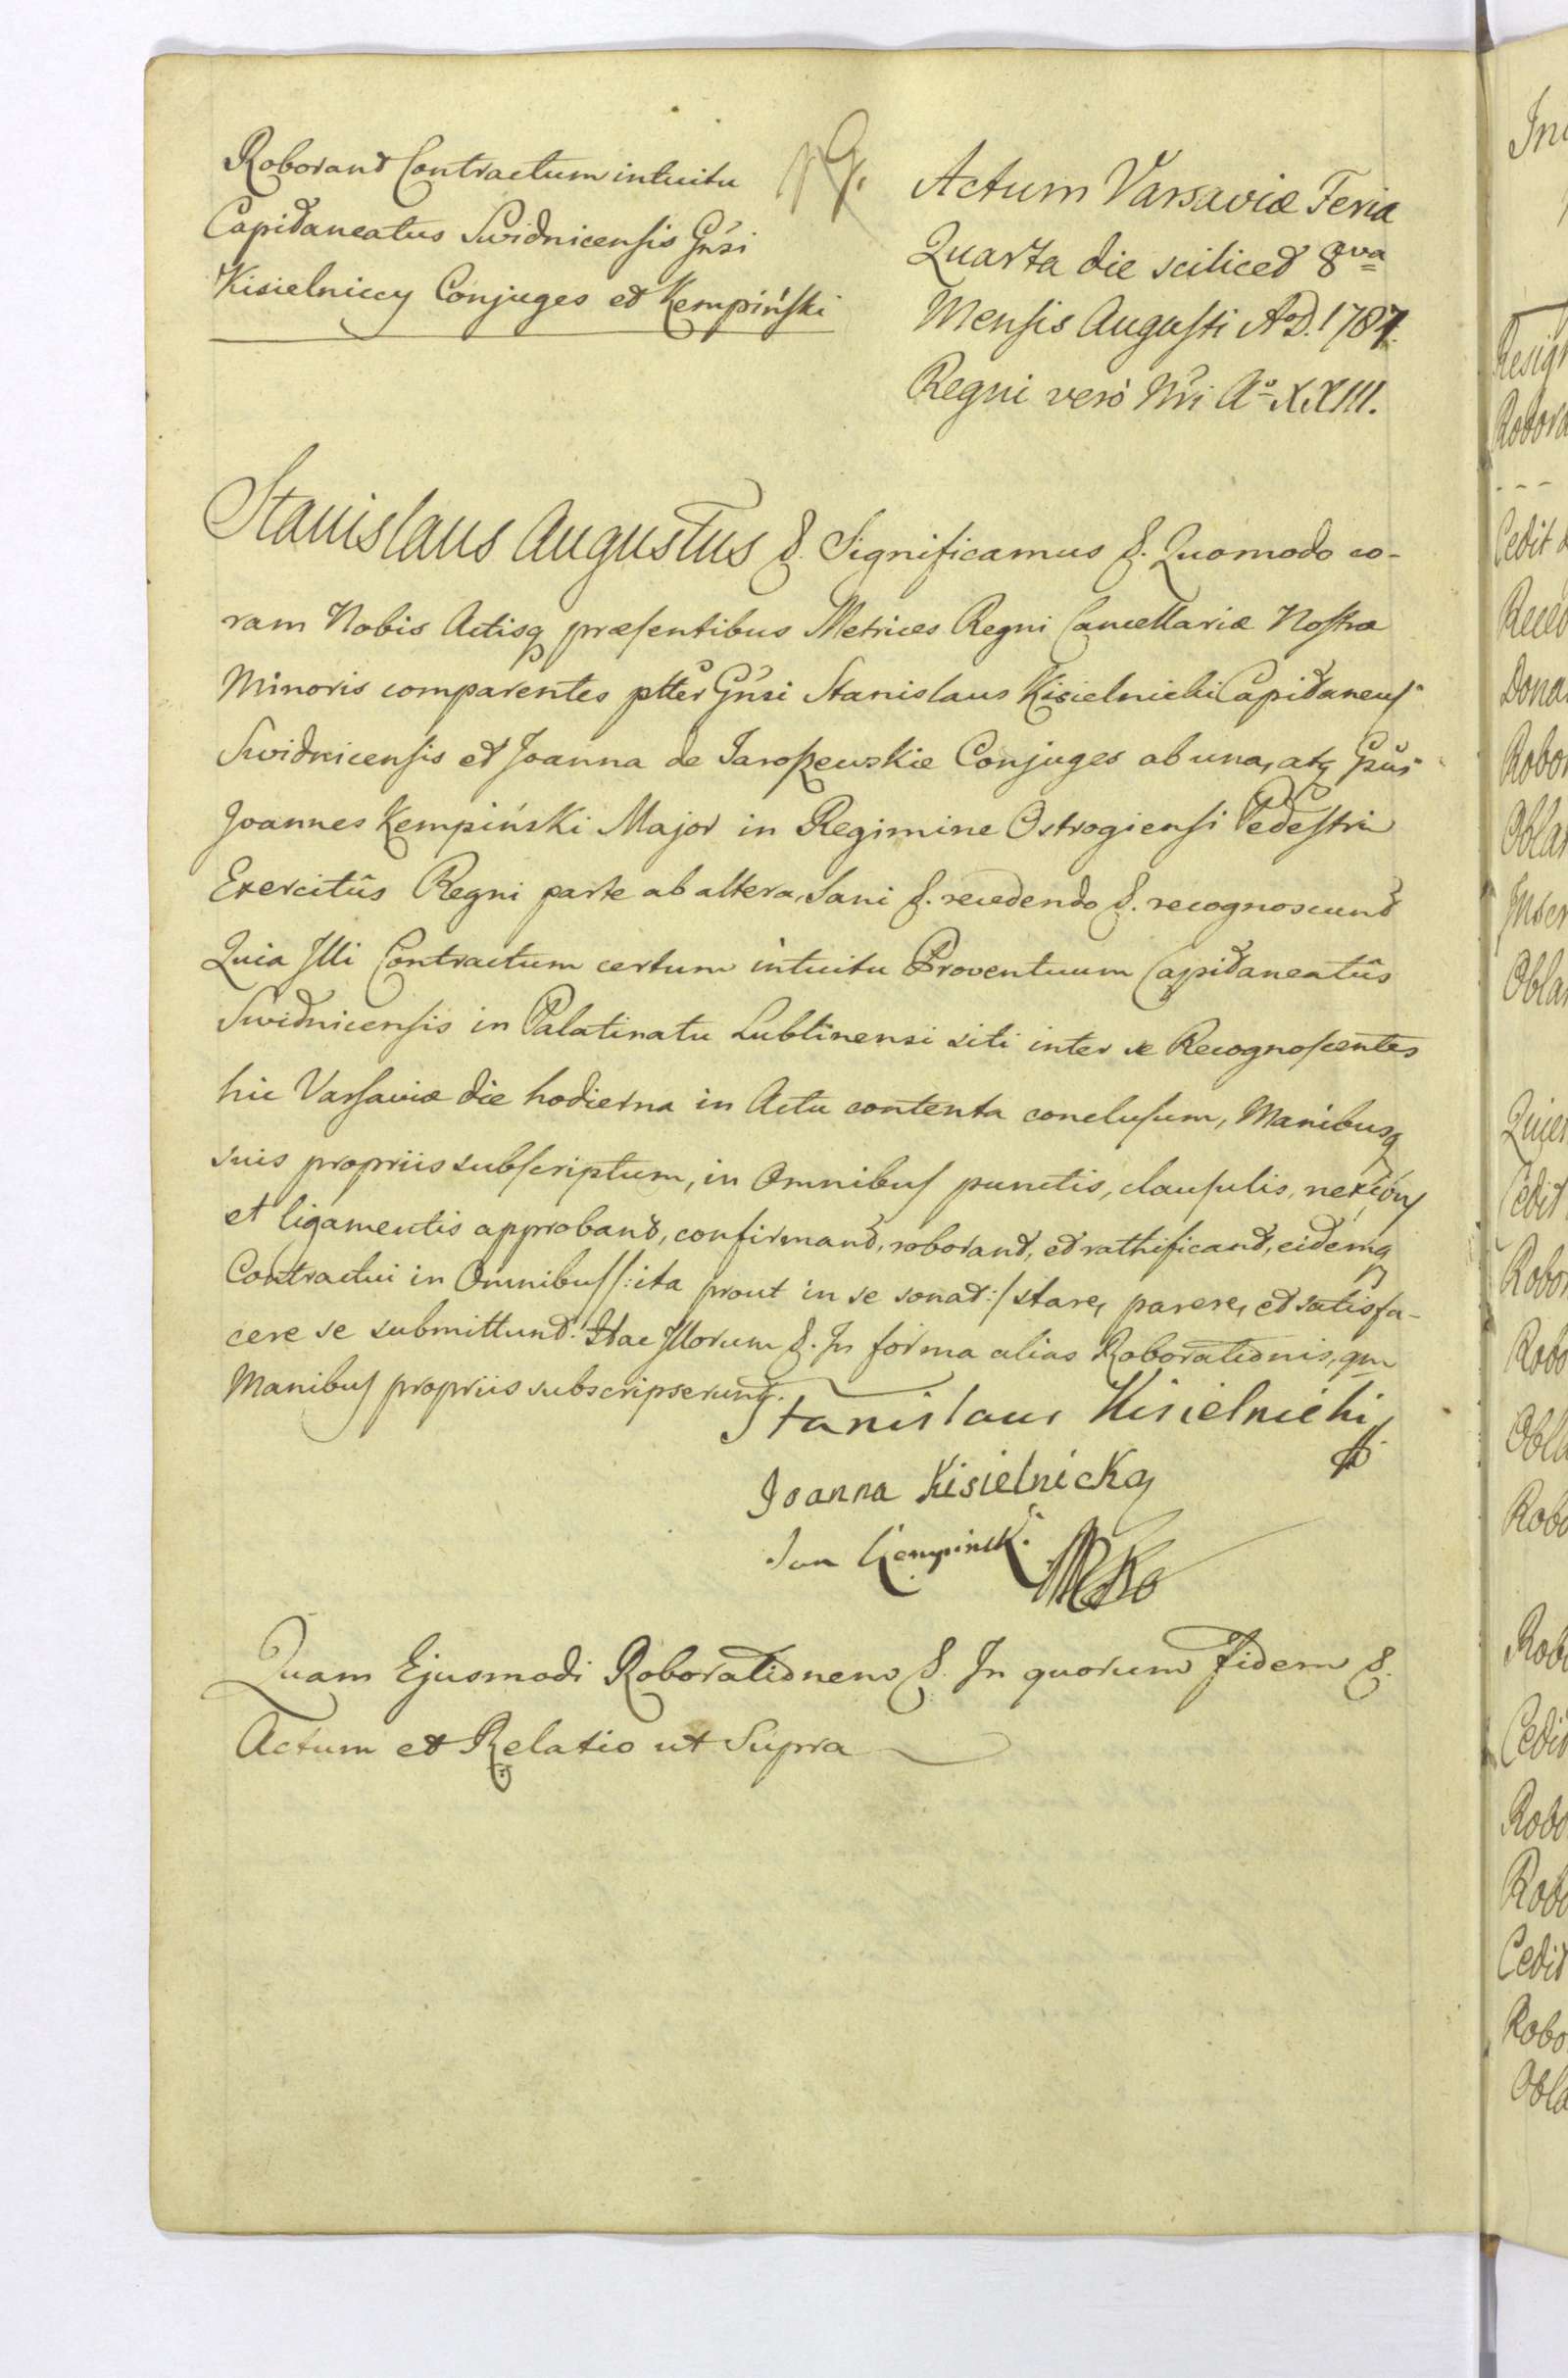 Roborant Contractum intuitu
Capitaneatus Swidnicensis Gnsi
Kisielniccy Conjuges et Kempiński
Actum Varsaviæ Feria
Quarta die scilicet 8va
Mensis Augusti A.D. 1787.
Regni vero Nri Ao XXIII.
Stanislaus Augustus &. Significamus &. Quomodo co-
ram Nobis Actisq præsentibus Metrices Regni Cancellariæ Nostræ
Minoris comparentes ptter Gnsi Stanislaus Kisielnicki Capitaneus
Swidnicensis et Joanna de Jaroszewskie Conjuges ab una, atq Gnus
Joannes Kempiński Major in Regimine Ostrogiensi Pedestri
Exercitûs Regni parte ab altera, Sani &. recedendo &. recognoscunt
Quia Illi Contractum certum intuitu Proventuum Capitaneatûs
Swidnicensis in Palatinatu Lublinensi siti inter se Recognoscentes
hic Varsaviæ die hodierna in Actu contenta conclusum, Manibusq
suis propriis subscriptum, in Omnibus punctis, clausulis, nexibus
et ligamentis approbant, confirmant, roborant, et rathificant, eidemq
Contractui in Omnibus /:ita prout in se sonat:/ stare, parere, et satisfa-
cere se submittunt. Hac Illorum &. In forma alias Roborationis, qm
Manibus propriis subscripserunt.
Stanislaus Kisielnicki
Joanna Kisielnicka
Jan Kempinski
Quam Ejusmodi Roborationem &. In quorum Fidem &.
Actum et Relatio ut Supra
Cedit